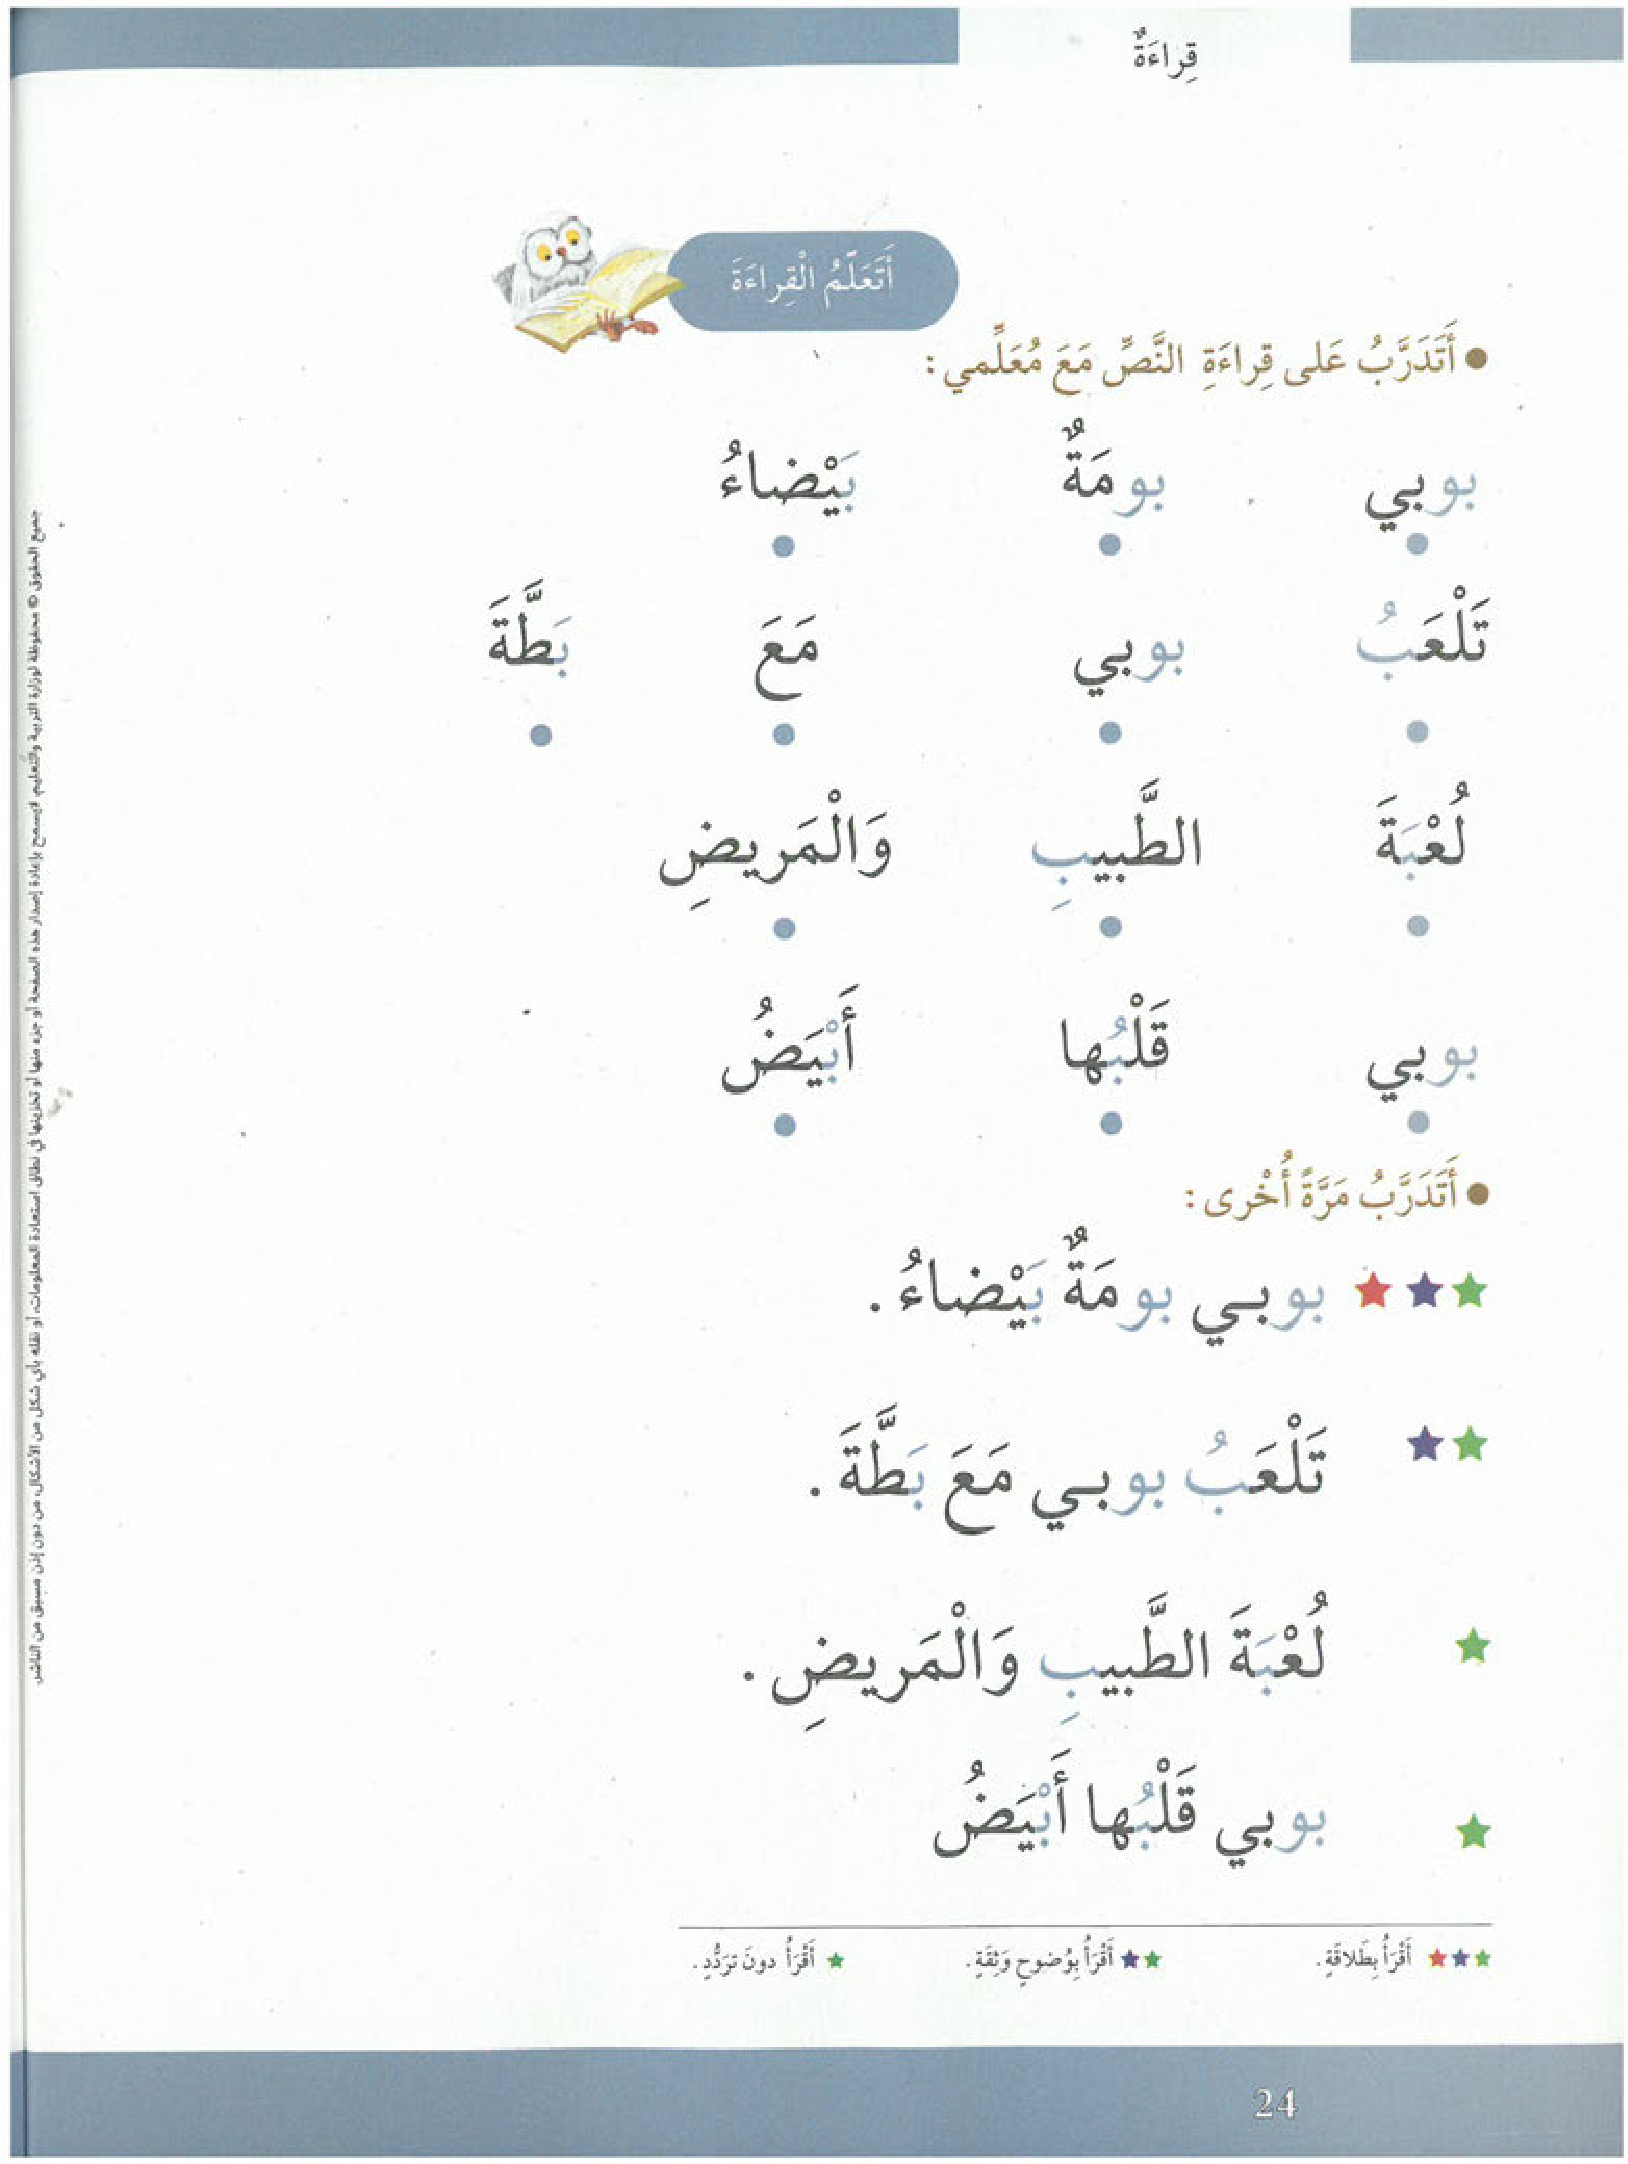 قِراءَةٌ
أَتَعَلَّمُ الْقِراءَةَ
● أَتَدَرَّبُ عَلى قِراءَةِ النَّصِّ مَعَ مُعَلِّمي:
بوبي بومَةٌ بَيْضاءُ
تَلْعَبُ بوبي مَعَ بَطَّةَ
لُعْبَةَ الطَّبيبِ وَالْمَريضِ
بوبي قَلْبُها أَبْيَضُ
● أَتَدَرَّبُ مَرَّةً أُخْرى:
★★★ بوبي بومَةٌ بَيْضاءُ.
★★ تَلْعَبُ بوبي مَعَ بَطَّةَ.
★ لُعْبَةَ الطَّبيبِ وَالْمَريضِ.
★ بوبي قَلْبُها أَبْيَضُ
★★★ أَقْرَأُ بِطَلاقَةٍ. ★★ أَقْرَأُ بِوُضوحٍ وَثِقَةٍ. ★ أَقْرَأُ دونَ تَرَدُّدٍ.
24
جميع الحقوق © محفوظة لوزارة التربية والتعليم. لايسمح بإعادة إصدار هذه الصفحة أو جزء منها أو تخزينها في نطاق استعادة المعلومات، أو نقله بأي شكل من الأشكال، من دون إذن مسبق من الناشر